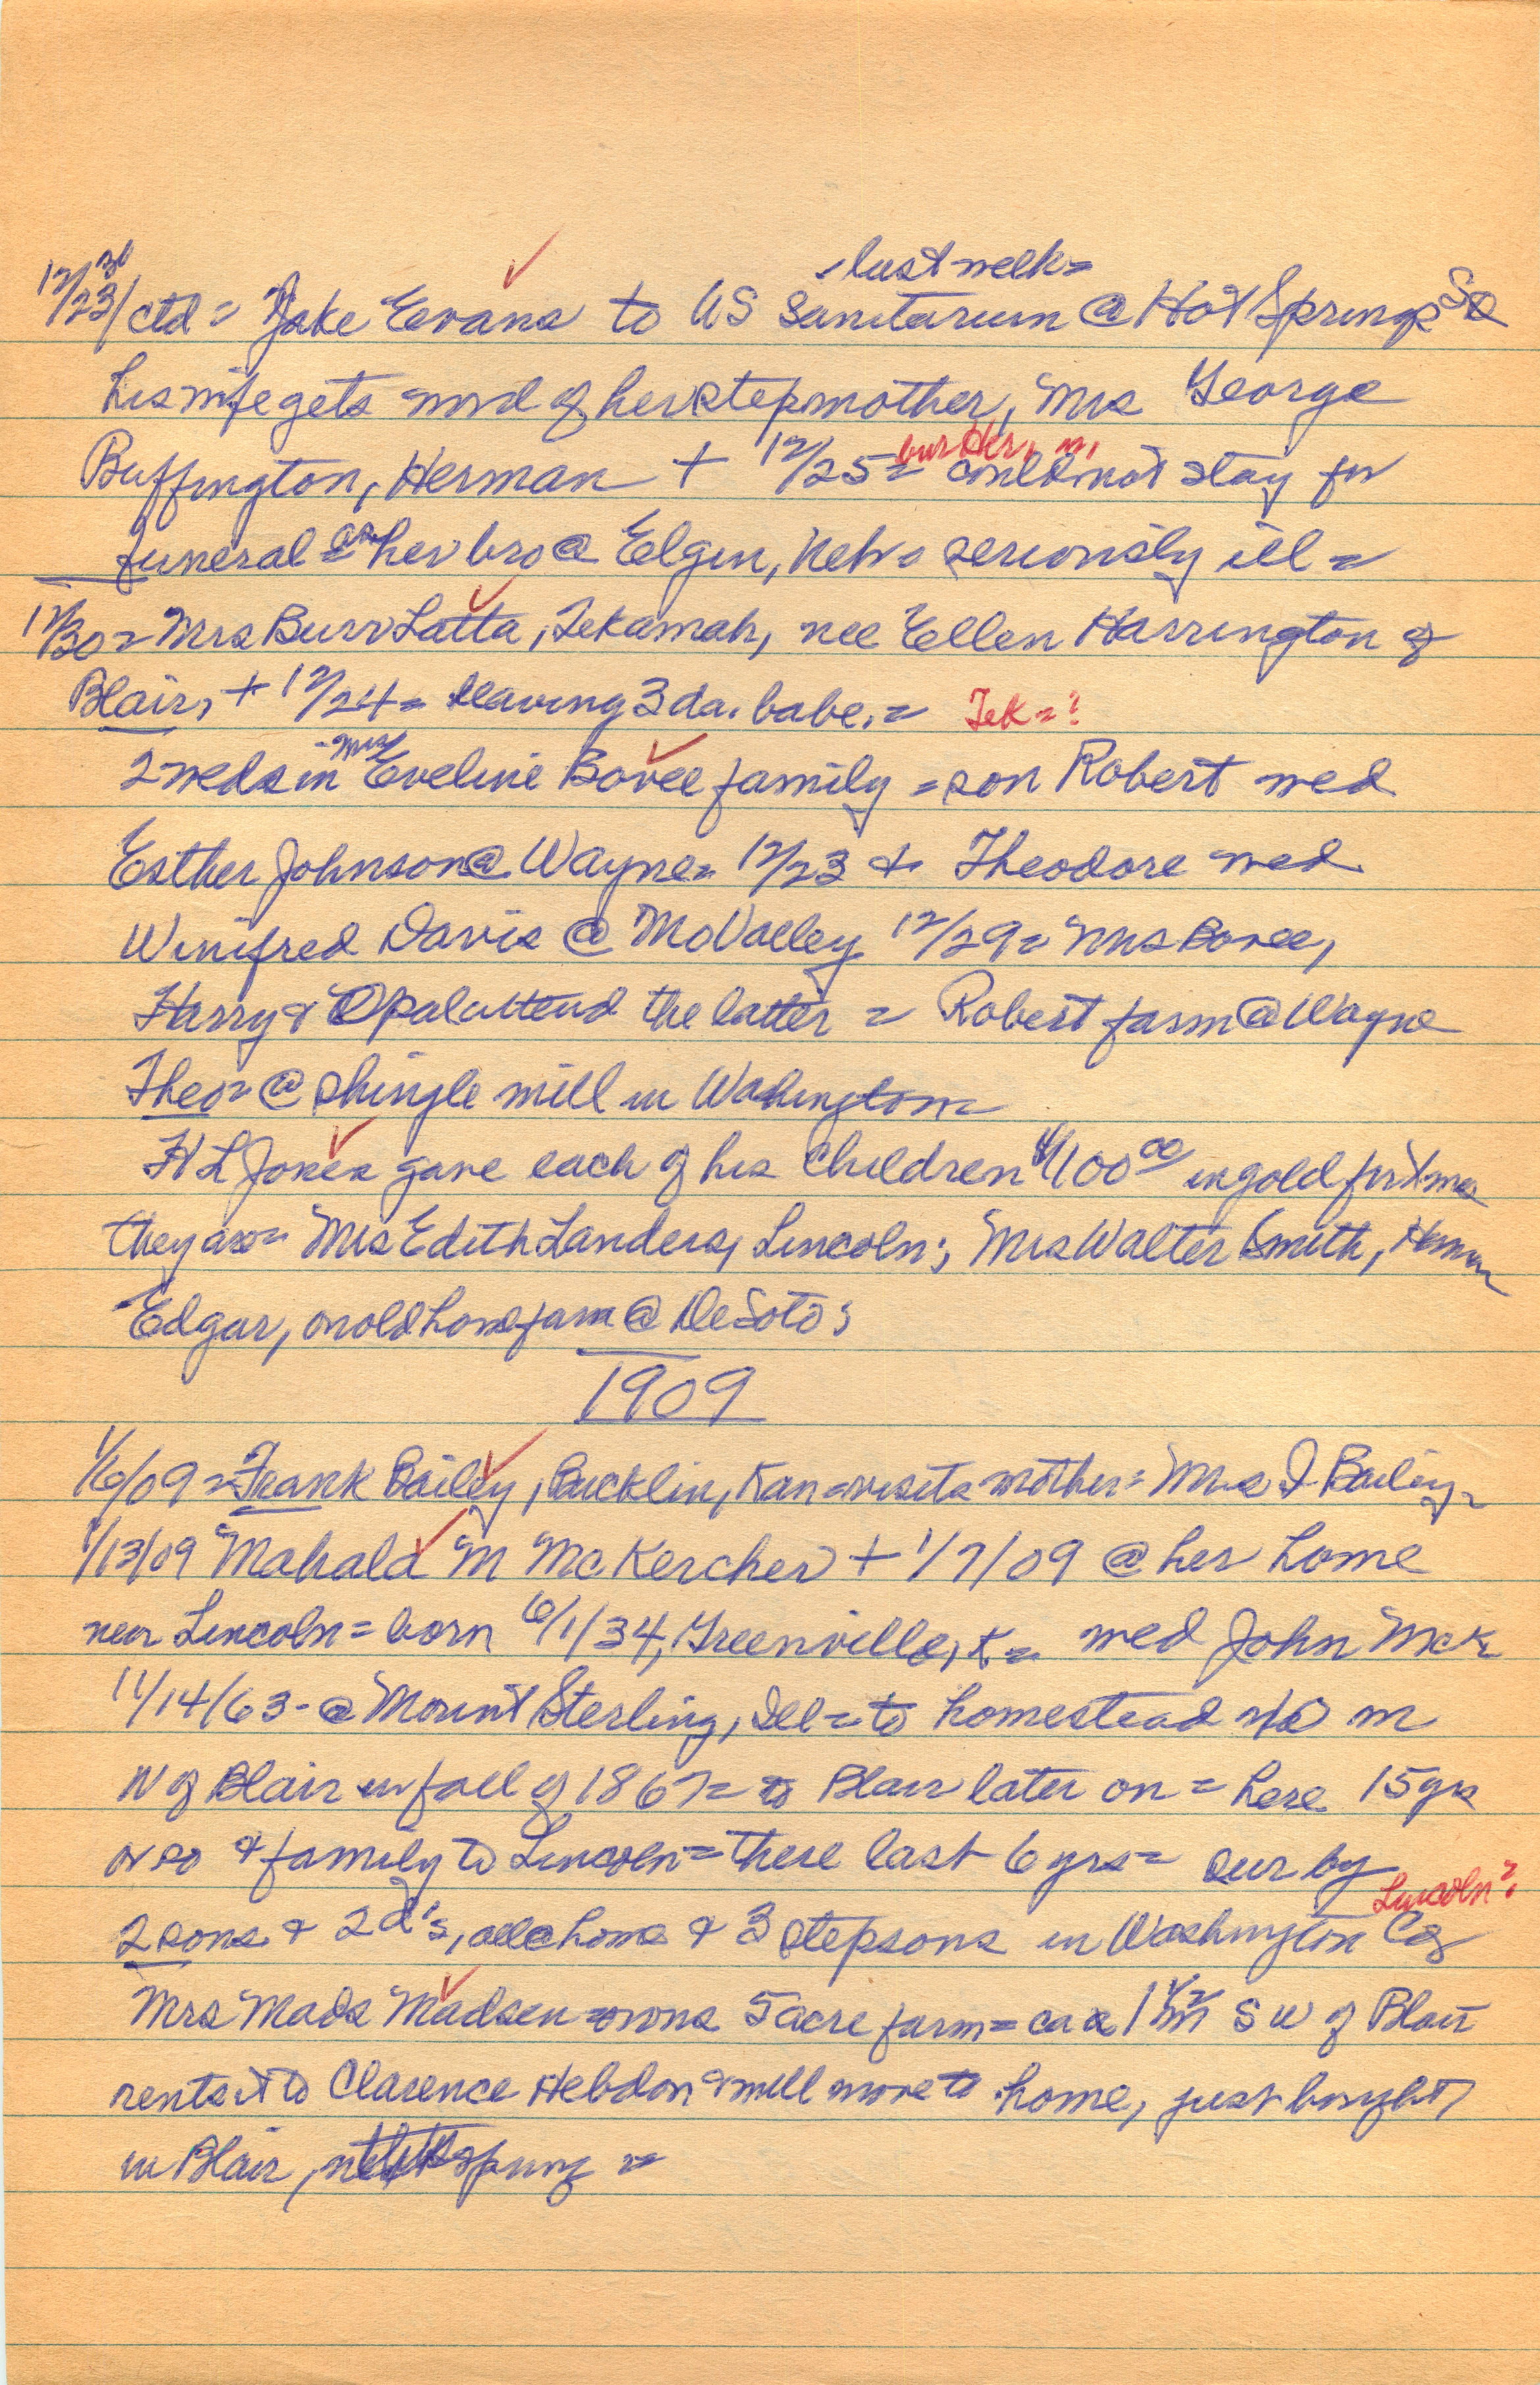 12/30
12/23/ ctd = Jake Evans to US Sanitarium last week = @ Hot Springs SD
his wife gets word of her stepmother, Mrs George
Buffington, Herman + 12/25 = bur Her, n, could not stay for
funeral as her bro @ Elgin, Neb = seriously ill =
12/30 = Mrs Burr Latta, Tekamah, nee Ellen Harrington of
Blair, + 12/24 = leaving 3 da. babe. = Tek = ?
2 weds in Mrs Eveline Bovee family = son Robert wed
Esther Johnson @ Wayne = 12/23 & Theodore wed
Winifred Davis @ Mo Valley 12/29 = Mrs Bovee,
Harry & Opal attend the latter = Robert farm @ Wayne
Theo = @ shingle mill in Washington =
H L Jones gave each of his children $100.00 in gold for Xmas
they are = Mrs Edith Landers, Lincoln; Mrs Walter Smith, Herman
Edgar, on old home farm @ De Soto;
1909
1/6/09 = Frank Bailey, Bucklin, Kan = visits mother = Mrs I Bailey =
1/13/09 Mahala M McKercher + 1/7/09 @ her home
near Lincoln = born 6/1/34, Greenville, K = wed John McK
11/14/63 - @ Mount Sterling, Ill = to homestead 10 m
N of Blair in fall of 1867 = to Blair later on = here 15 yrs
or so & family to Lincoln = there last 6 yrs = sur by
2 sons & 2 d's, all @ home & 3 stepsons in Washington Co Lincoln?
Mrs Mads Madsen = owns 5 acre farm = ca 1 1/2 m S W of Blair
rents it to Clarence Hebdon & will move to home, just bought
in Blair, spring =